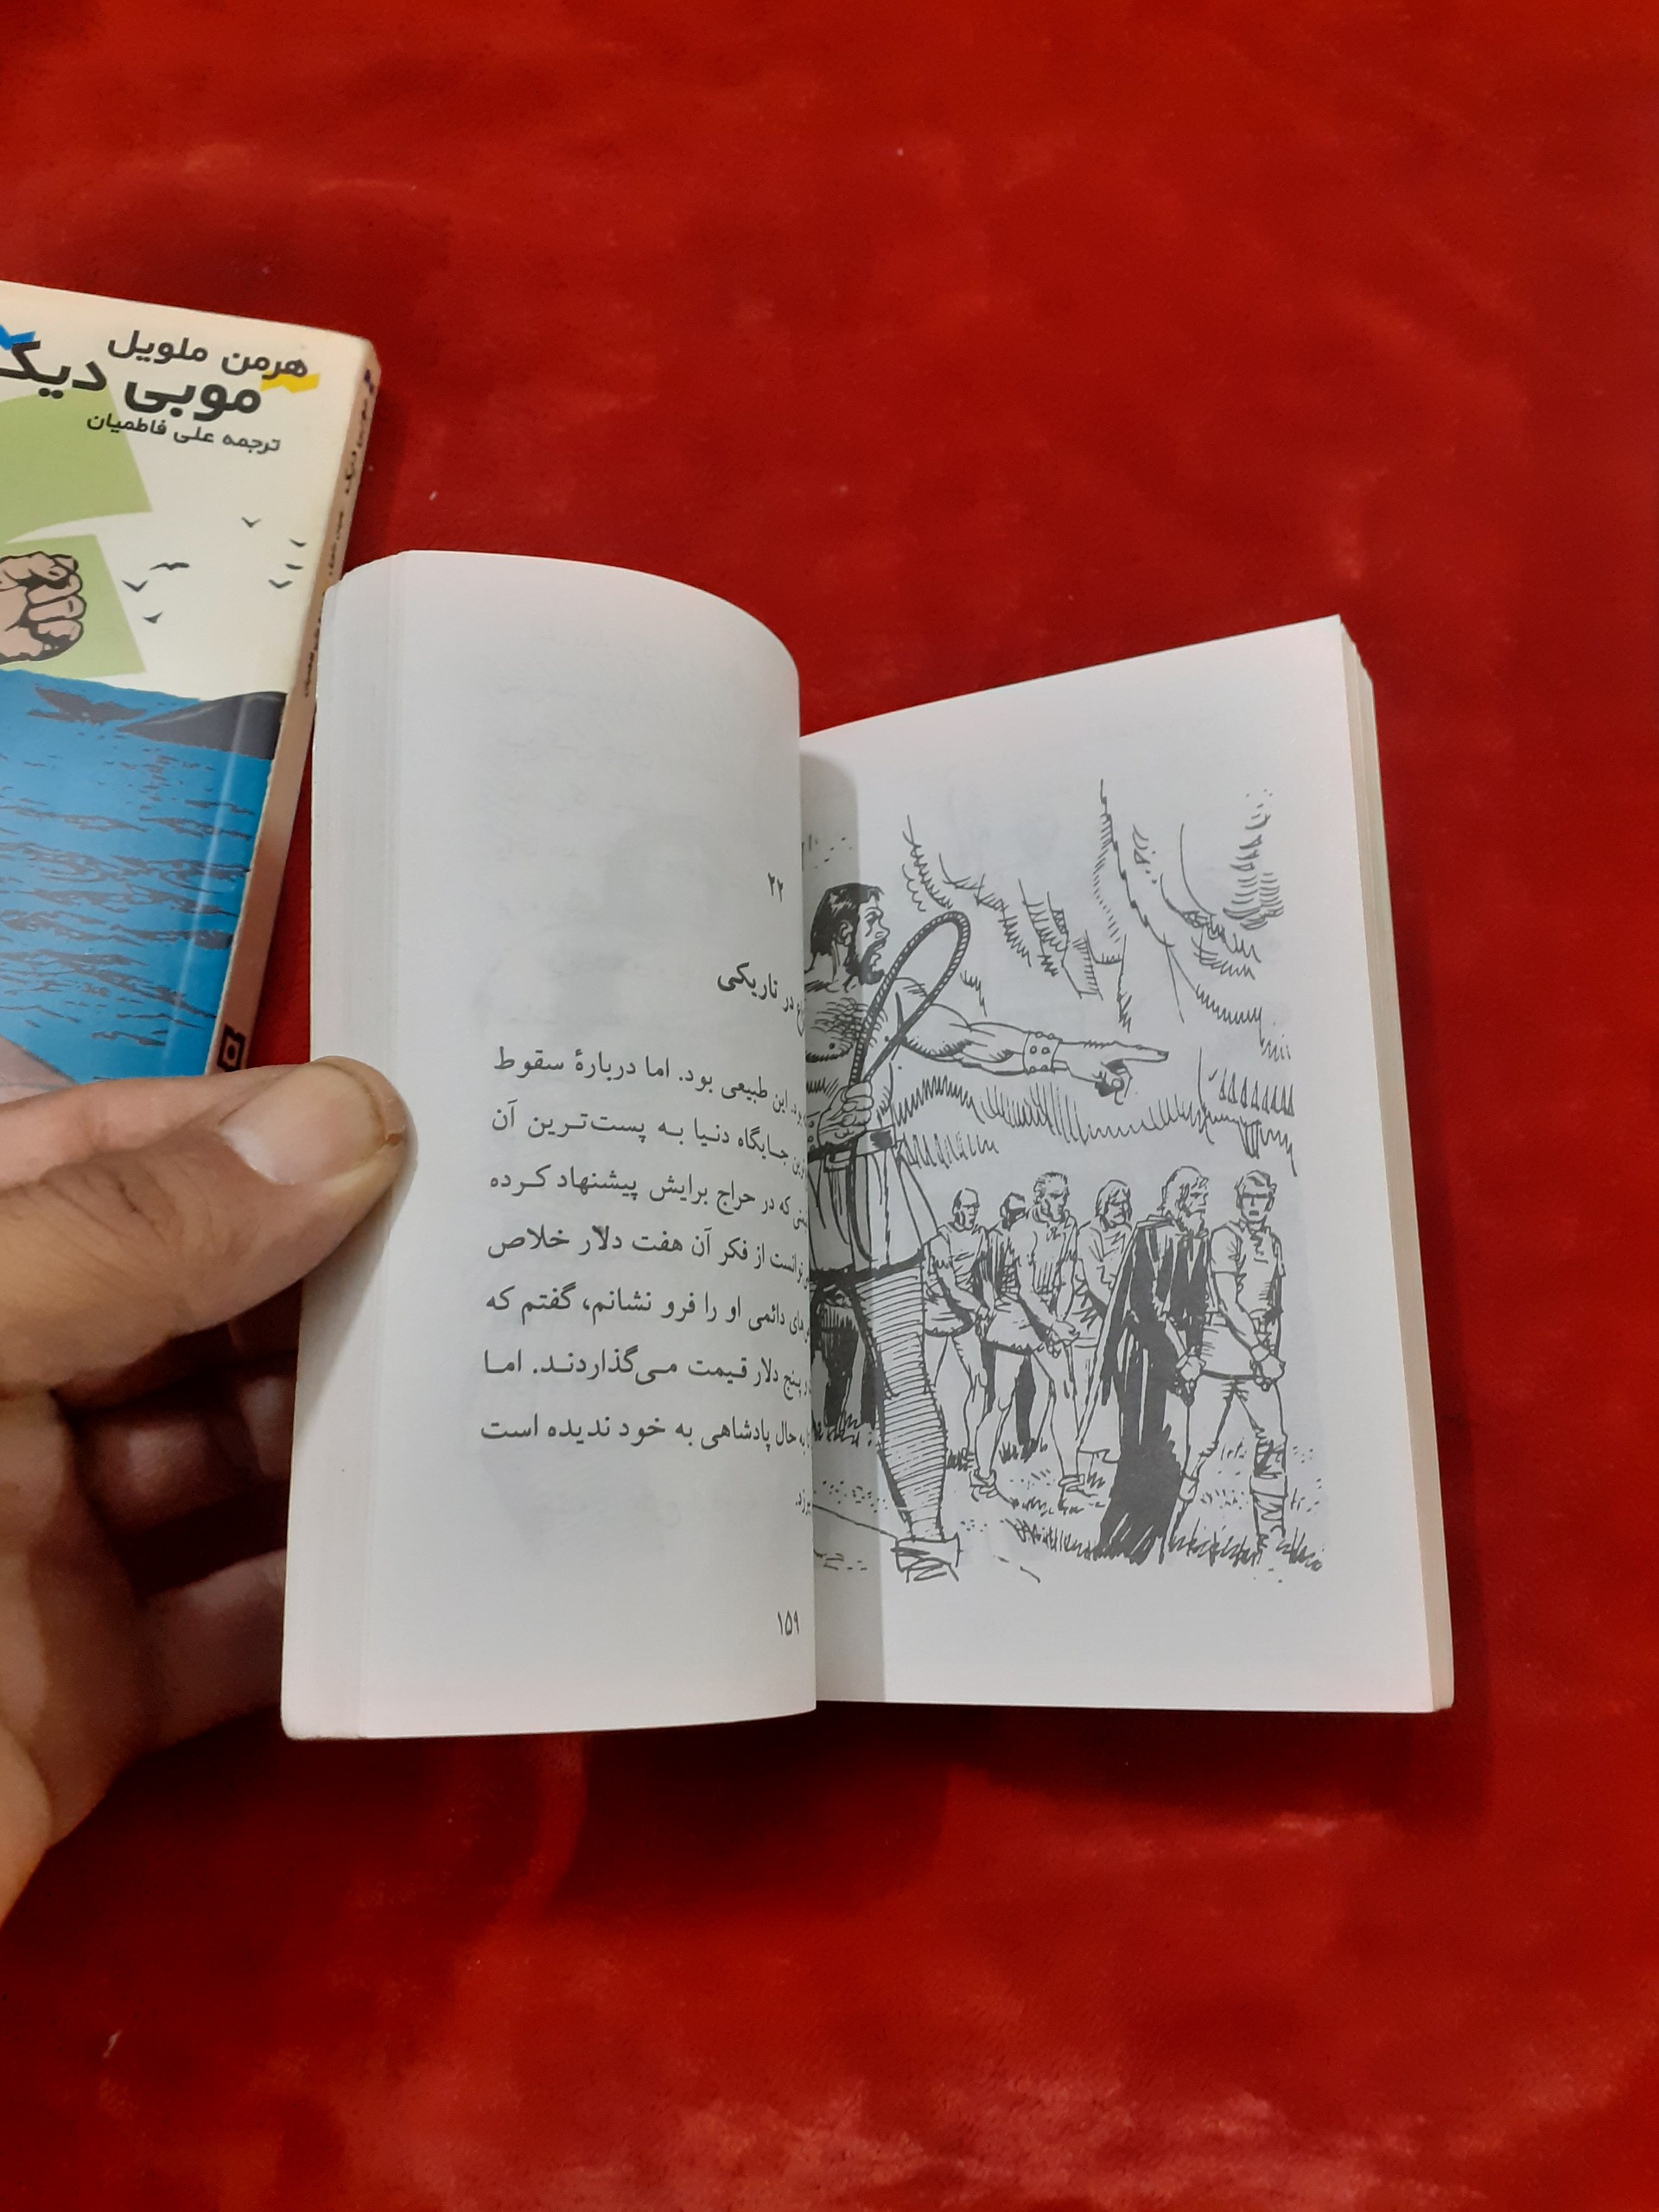 هرمن ملویل
موبی دیک
ترجمه علی فاطمیان
۲۲
در تاریکی
این طبیعی بود. اما دربارهٔ سقوط
جایگاه دنیا به پست‌ترین آن
که در حراج برایش پیشنهاد کرده
توانست از فکر آن هفت دلار خلاص
های دائمی او را فرو نشانم، گفتم که
پنج دلار قیمت می‌گذاردند. اما
به حال پادشاهی به خود ندیده است
۱۵۹